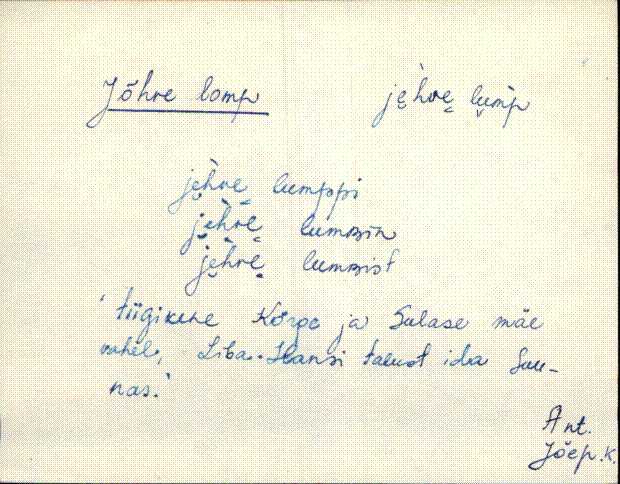 Jõhve lomp je̮hve̮ lump
je̮hve̮ lumppi
je̮hve̮ lumʙin
je̮hve̮ lumʙist
'tiigikene Kõrge ja Sulase mäe
vahel, Liba-Hansi talust ida suu-
nas.'
Ant.
Jõep.k.